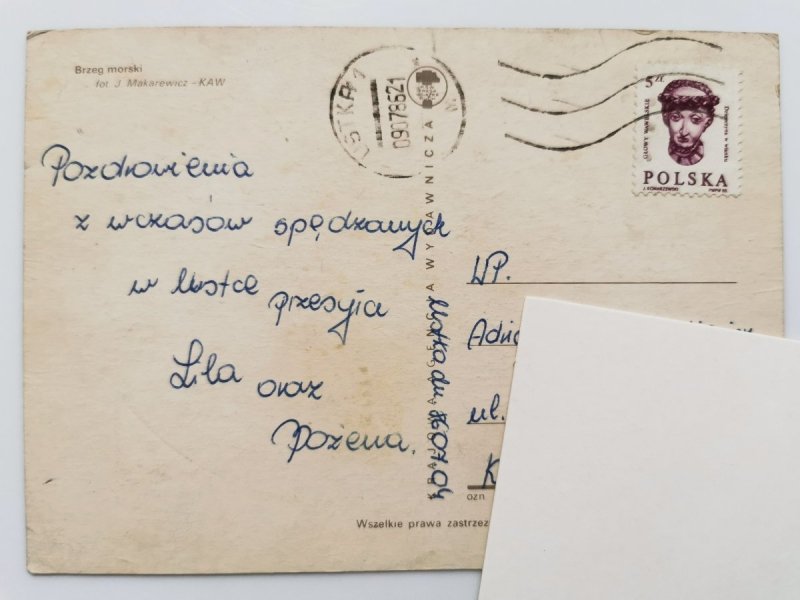 Brzeg morski
fot J. Makarewicz – KAW
USTKA 1
09078621
5 ZŁ
GŁOWY WAWELSKIE
POLSKA
Pozdrowienia
z wczasów spędzanych
w Ustce przesyła
Lila oraz
Bożena.
KRAJOWA AGENCJA WYDAWNICZA
Ustka, dn. 86.07.04
WP.
ul.
K
ozn
Wszelkie prawa zastrzeż